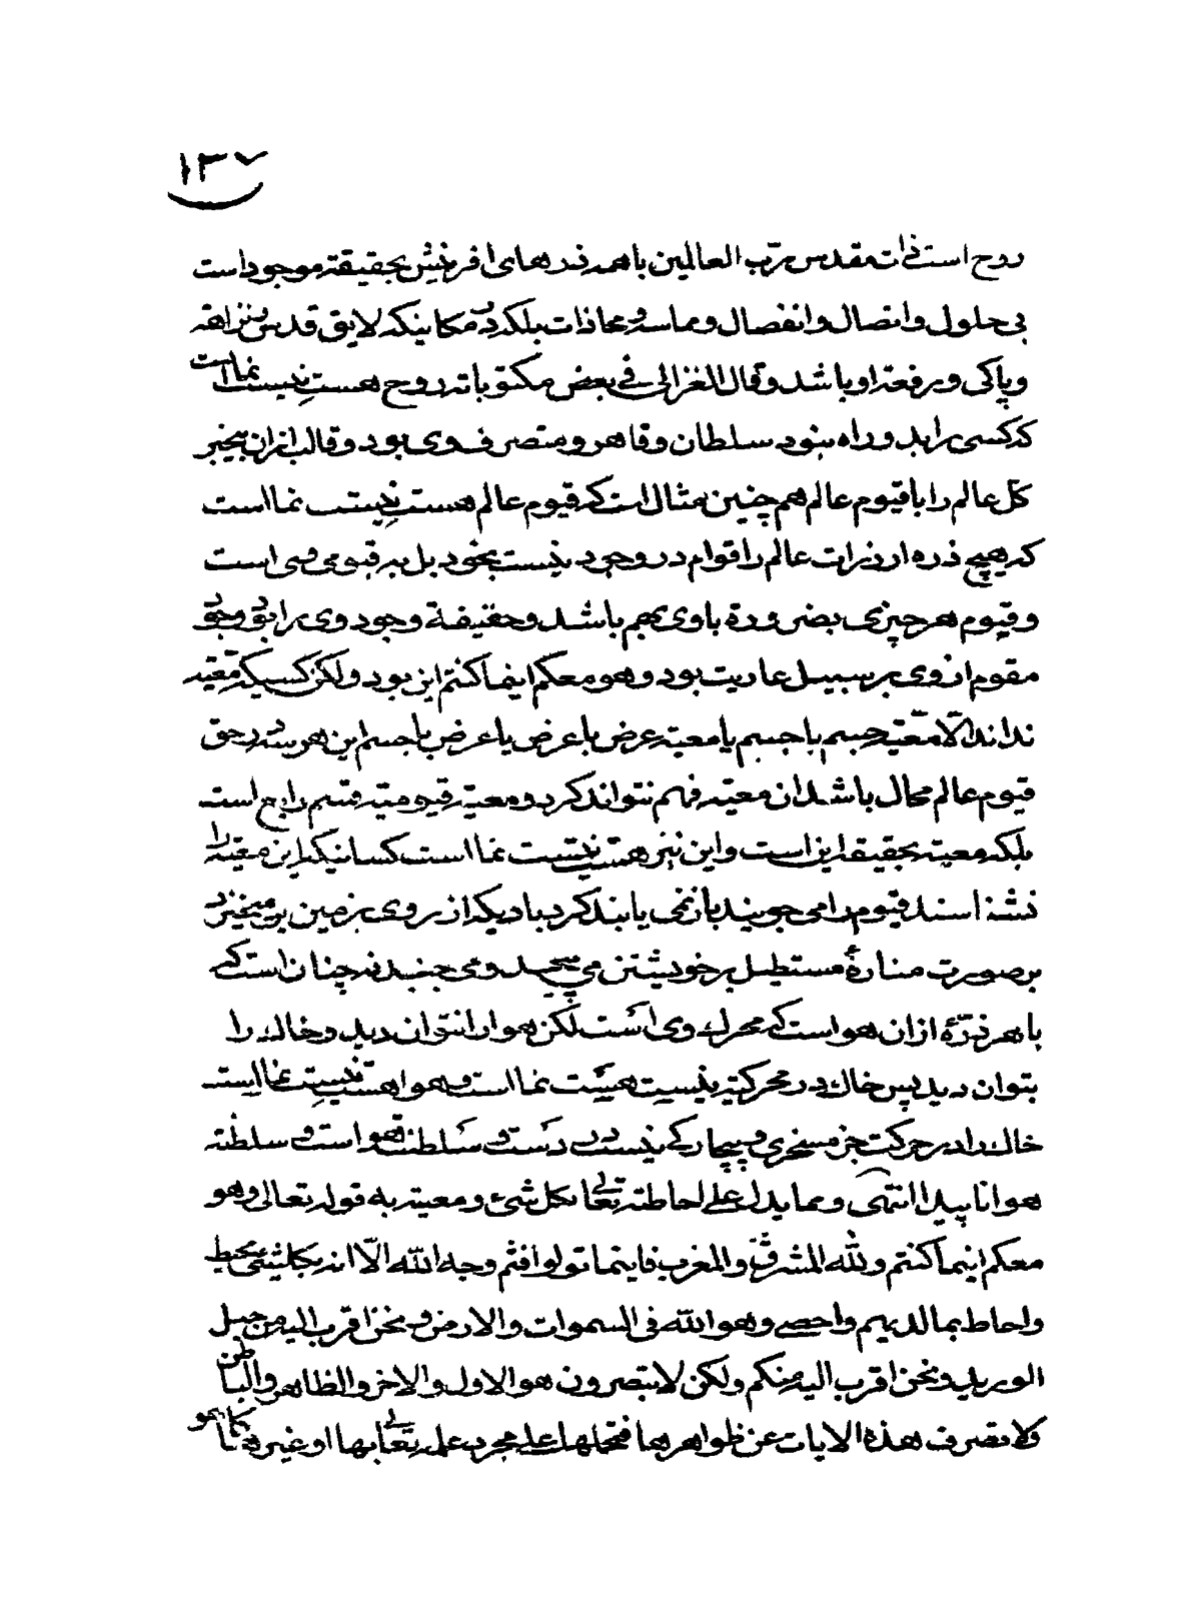 ١٣٧
روح است ذات مقدس رب العالمین با همه ذرهای افرینش بحقیقة موجود است
بی حلول و اتصال و انفصال و مماسه و محاذات بلکه در مکانیکه لایق قدس و نزاهة
و پاکی و رفعة او باشد و قال الغزالی فی بعض مکتوباته روح هست نیست نما است
که کسی را بدو راه نبود سلطان و قاهر و متصرف وی بود و قالب ازان بیخبر
کل عالم را با قیوم عالم هم چنین مثال است که قیوم عالم هست نیست نما است
که هیچ ذره از ذرات عالم را قوام در وجود نیست بخود بل به قیومی وی است
و قیوم هر چیزی بضرورة با وی بهم باشد و حقیقة وجود وی را بود وجود
مقوم از وی بر سبیل عاریت بود و هو معکم اینما کنتم این بود ولکن کسیکه معیة
نداند الّا معیّة جسم با جسم یا معیة عرض با عرض یا عرض با جسم این هر سه در حق
قیوم عالم محال باشد ان معیة فهم نتواند کرد و معیة قیومیة قسم رابع است
بلکه معیة بحقیقة این است و این نیز هست نیست نما است کسانیکه این معیة را
نشناسند قیوم را می جویند باز نمی یابند کرد بادیکه از روی زمین برمیخیزد
بر صورت منارهٔ مستطیل بر خویشتن می پیچد و می جنبد نه چنان است که
با هر ذرّهٔ ازان هوا است که محرك وی است لکن هوا را نتوان دید و خاك را
بتوان دید پس خاك در محرکیة نیست هست نما است و هوا هست نیست نما است
خاك را در حرکت جز مسخری و بیچارکی نیست در دست و سلطنة هوا است و سلطنة
هوا ناپیدا انتهی و مما یدل علی احاطته تعالی بکل شئ و معیته به قوله تعالی و هو
معکم اینما کنتم و لله المشرق و المغرب فاینما تولوا فثم وجه الله الّا انه بکل شئ محیط
و احاط بما لدیهم و احصی و هو الله فی السموات و الارض و نحن اقرب الیه من حبل
الورید و نحن اقرب الیه منکم ولکن لا تبصرون هو الاول و الاخر و الظاهر و الباطن
ولا تصرف هذه الایات عن ظواهرها فتحملها علی مجرد علمه تعالی بها او غیره کما هو